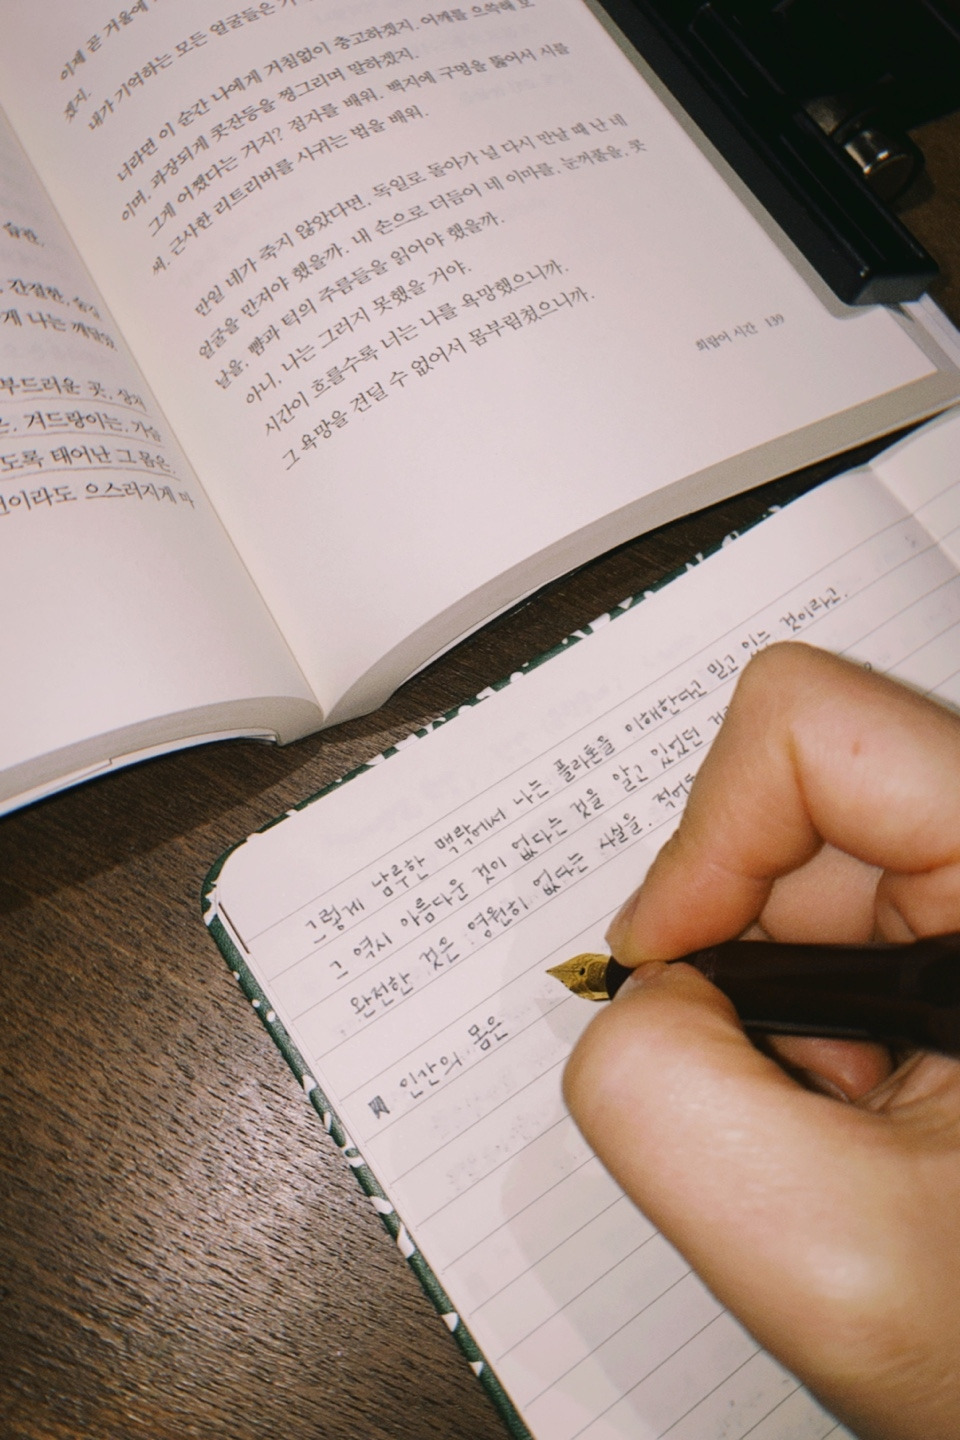 습관.
간절한,
게 나는 깨달았
부드러운 곳,
은, 겨드랑이는, 가슴
도록 태어난 그 몸은.
이라도 으스러지게 마
이제 곧 거울에
겠지.
내가 기억하는 모든 얼굴들은
너라면 이 순간 나에게 거침없이 충고하겠지. 어깨를 으쓱해 보
이며, 과장되게 콧잔등을 찡그리며 말하겠지.
그게 어쨌다는 거지? 점자를 배워. 백지에 구멍을 뚫어서 시를
써. 근사한 리트리버를 사귀는 법을 배워.
만일 네가 죽지 않았다면, 독일로 돌아가 널 다시 만날 때 난 네
얼굴을 만져야 했을까. 내 손으로 더듬어 네 이마를, 눈꺼풀을, 콧
날을, 뺨과 턱의 주름들을 읽어야 했을까.
아니, 나는 그러지 못했을 거야.
시간이 흐를수록 너는 나를 욕망했으니까.
그 욕망을 견딜 수 없어서 몸부림쳤으니까.
희랍어 시간 139
그렇게 남루한 맥락에서 나는 플라톤을 이해한다고 믿고 있는 것이라고.
그 역시 아름다운 것이 없다는 것을 알고 있었던
완전한 것은 영원히 없다는 사실을.
인간의 몸은